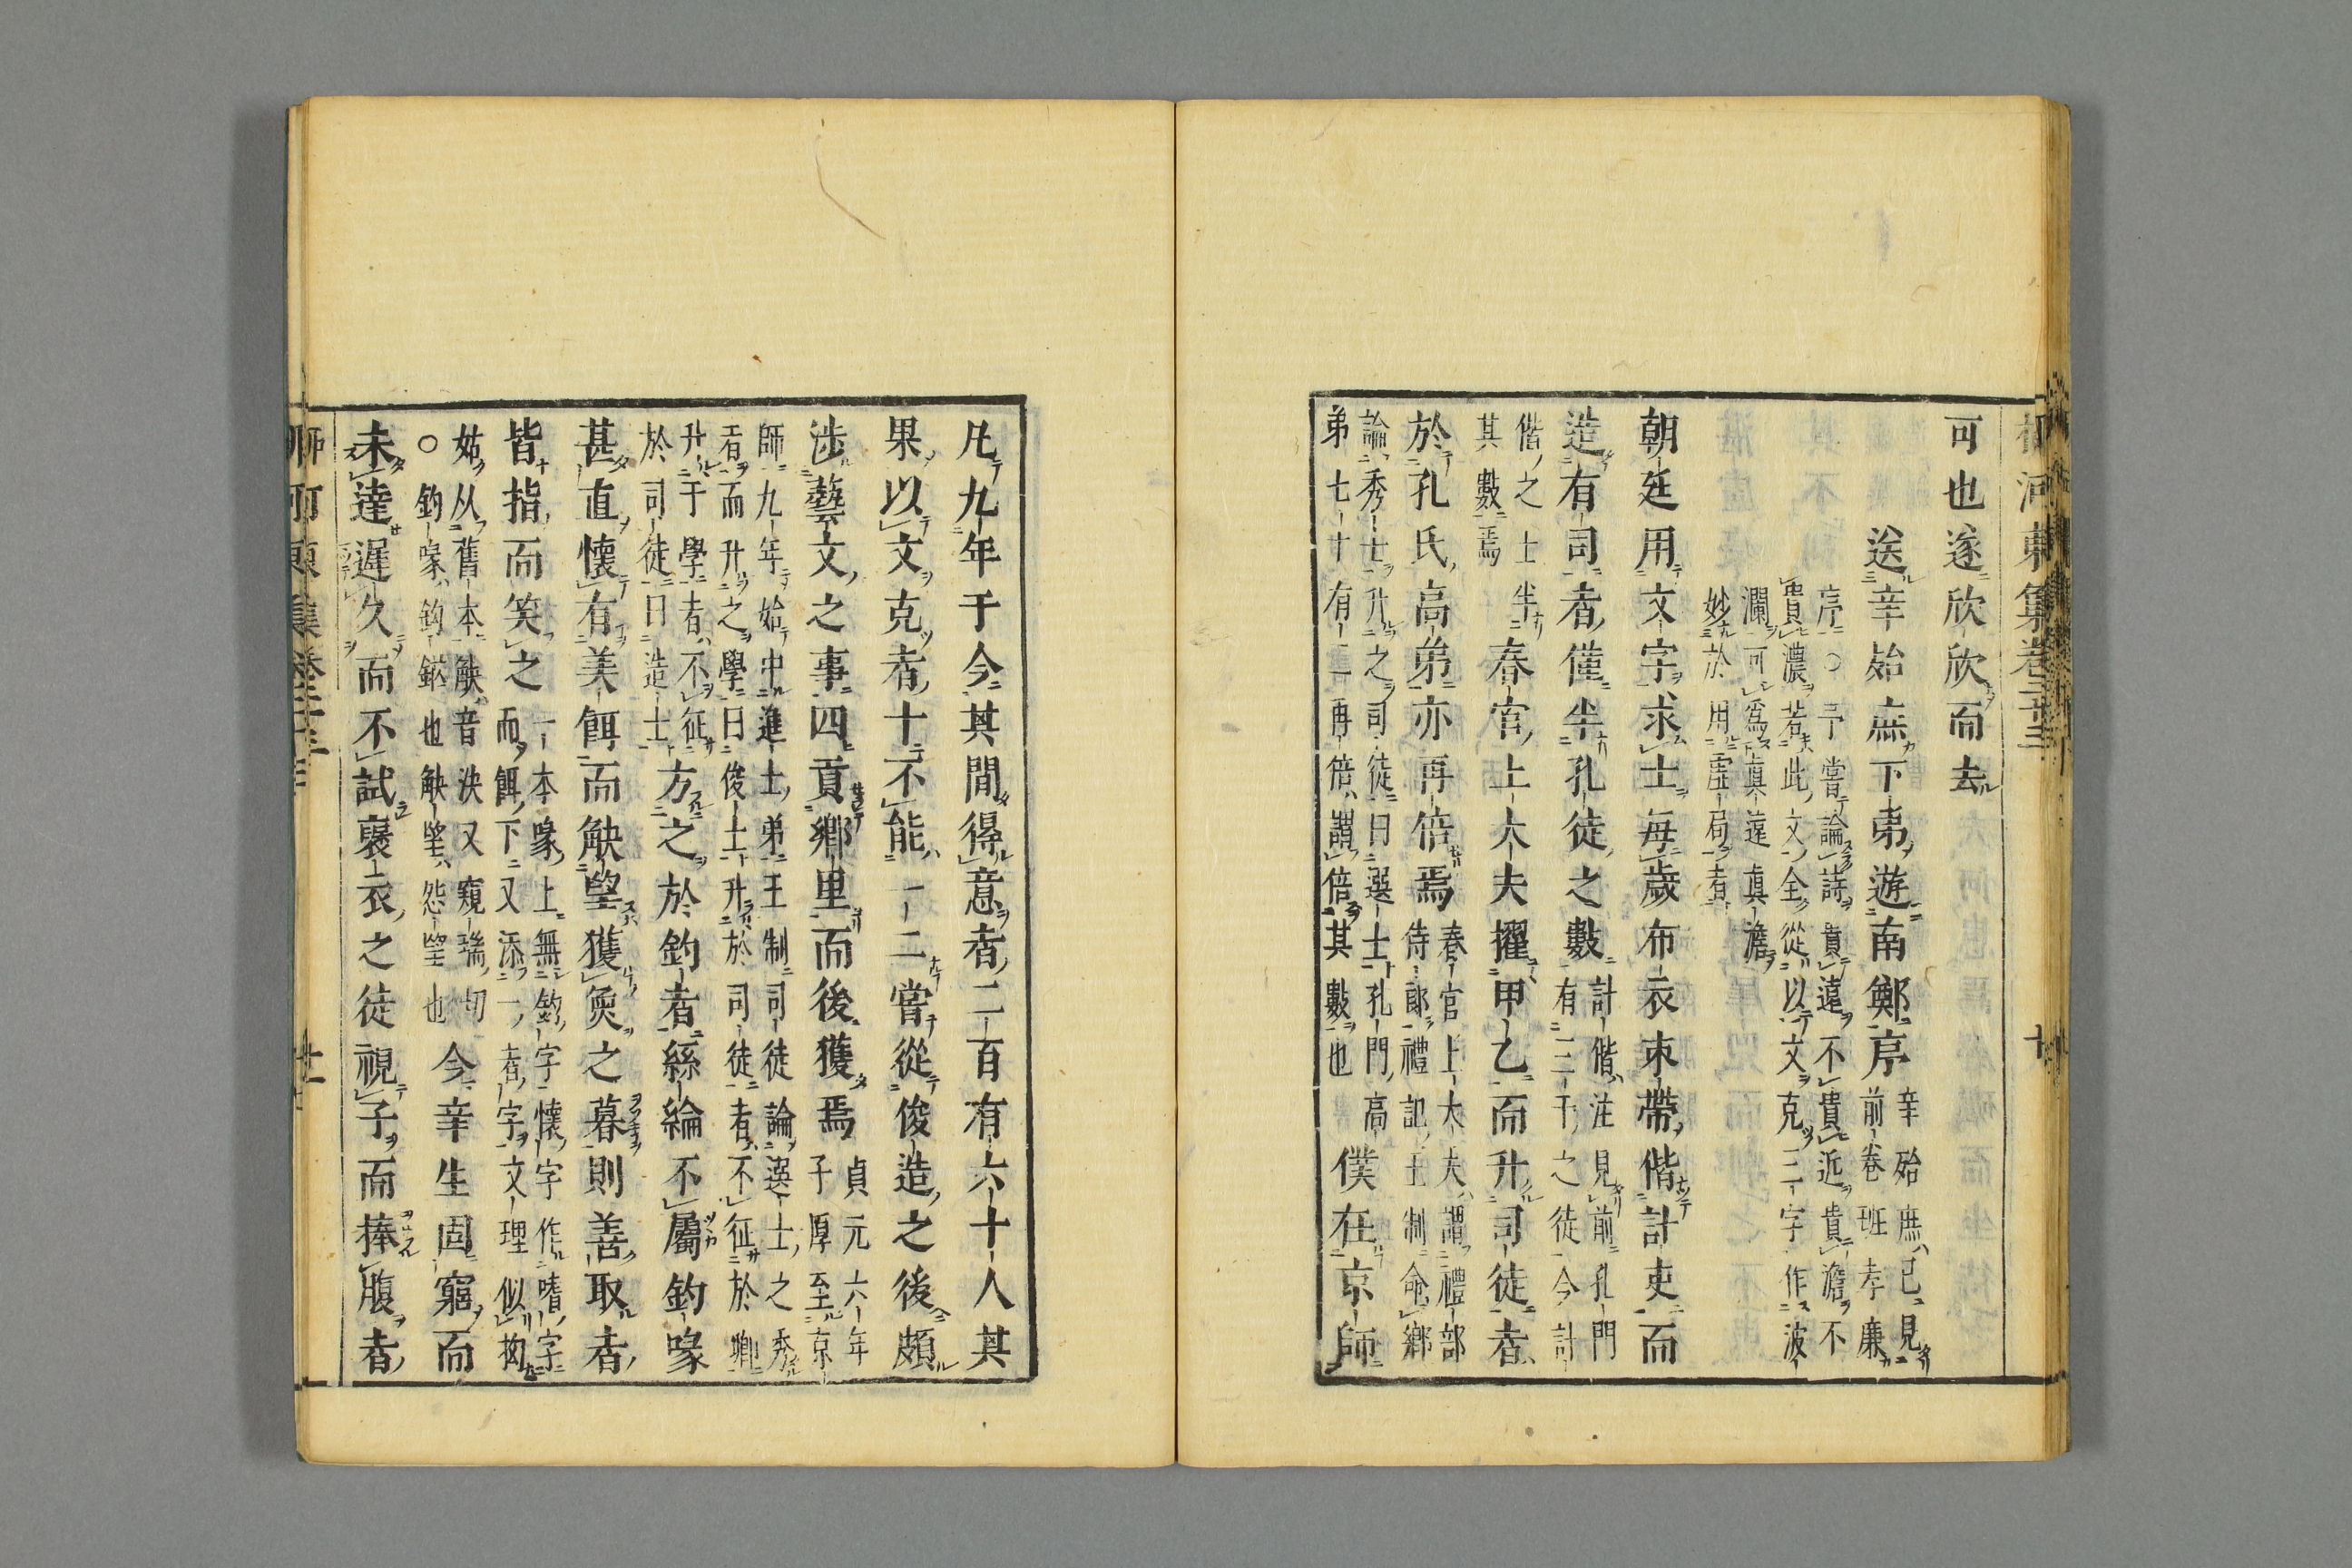 柳河東集卷二十三　十
可也遂欣欣而去
送辛殆庶下第遊南鄭序
辛殆庶已見
前卷班孝廉
序○予嘗論詩貴遠不貴近貴澹不
貴濃若此文全從以文克三字作波
瀾可爲眞遠眞澹
妙於用虛局者
朝廷用文字求士每歲布衣束帶偕計吏而
造有司者僅半孔徒之數
計偕注見前孔門
有三千之徒今計
偕之士半
其數焉
春官上大夫擢甲乙而升司徒者
於孔氏高弟亦再倍焉
春官上大夫謂禮部
侍郞禮記王制命鄕
論秀士升之司徒曰選士孔門高
弟七十有二再倍謂倍其數也
僕在京師
凡九年于今其間得意者二百有六十人其
果以文克者十不能一二嘗從俊造之後頗
涉藝文之事四貢鄕里而後獲焉
貞元六年
子厚至京
師九年始中進士弟王制司徒論選士之秀
者而升之學曰俊士升於司徒者不征於鄕
升于學者不征
於司徒曰造士
方之於釣者絲綸不屬釣喙
甚直懷有美餌而觖望獲魚之暮則善取者
皆指而笑之
一本喙上無釣字懷字作嗜字
而餌下又添一者字文理似拗
姑从舊本觖音決又窺瑞切
○釣喙釣鎡也觖望怨望也
今辛生固窮而
未達遲久而不試褎衣之徒視子而捧腹者
柳河東集卷二十三　十一